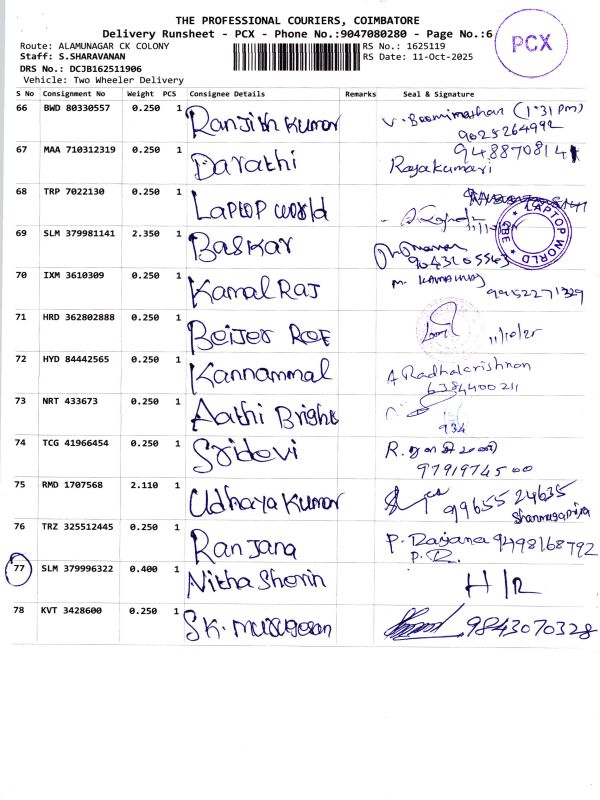 THE PROFESSIONAL COURIERS, COIMBATORE
Delivery Runsheet - PCX - Phone No.:9047080280 - Page No.:6
PCX
Route: ALAMUNAGAR CK COLONY
RS No.: 1625119
Staff: S.SHARAVANAN
RS Date: 11-Oct-2025
DRS No.: DCJB162511906
Vehicle: Two Wheeler Delivery
S No Consignment No Weight PCS Consignee Details Remarks Seal & Signature
66 BWD 80330557 0.250 1 Ranjith Kumar V. Boomimathan (1:31 pm)
9025264992
67 MAA 710312319 0.250 1 Darathi Rajakumari
9488708141
68 TRP 7022130 0.250 1 Laptop world
LAPTOP WORLD
CBE
69 SLM 379981141 2.350 1 Baskar
9043205543
70 IXM 3610309 0.250 1 Kamal Raj M. KAMALRAJ
9952271329
71 HRD 362802888 0.250 1 Beijer ROE 11/10/25
72 HYD 84442565 0.250 1 Kannammal A Radhakrishnan
6384400211
73 NRT 433673 0.250 1 Aathi Bright
934
74 TCG 41966454 0.250 1 Sridevi
9791974500
75 RMD 1707568 2.110 1 Udhaya Kumar 9965524635
Shanmugapriya
76 TRZ 325512445 0.250 1 Ranjana P. Ranjana 9498168792
P. R.
77 SLM 379996322 0.400 1 Nitha Sherin H/R
78 KVT 3428600 0.250 1 SK. Murugesan 9843070328